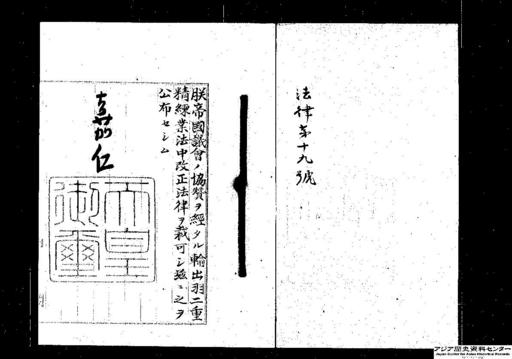 法律第十九號
朕帝國議會ノ協贊ヲ經タル輸出羽二重
精練業法中改正法律ヲ裁可シ茲ニ之ヲ
公布セシム
嘉仁
天皇
御璽
アジア歴史資料センター
Japan Center for Asian Historical Records